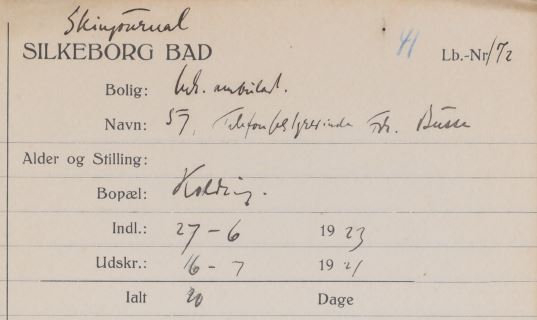 Skinjournal
SILKEBORG BAD 41 Lb.-Nr 172
Bolig: ambulat.
Navn: 57, Frk. Busse
Alder og Stilling:
Bopæl: Kolding.
Indl.: 27-6 1923
Udskr.: 16-7 192
Ialt 20 Dage